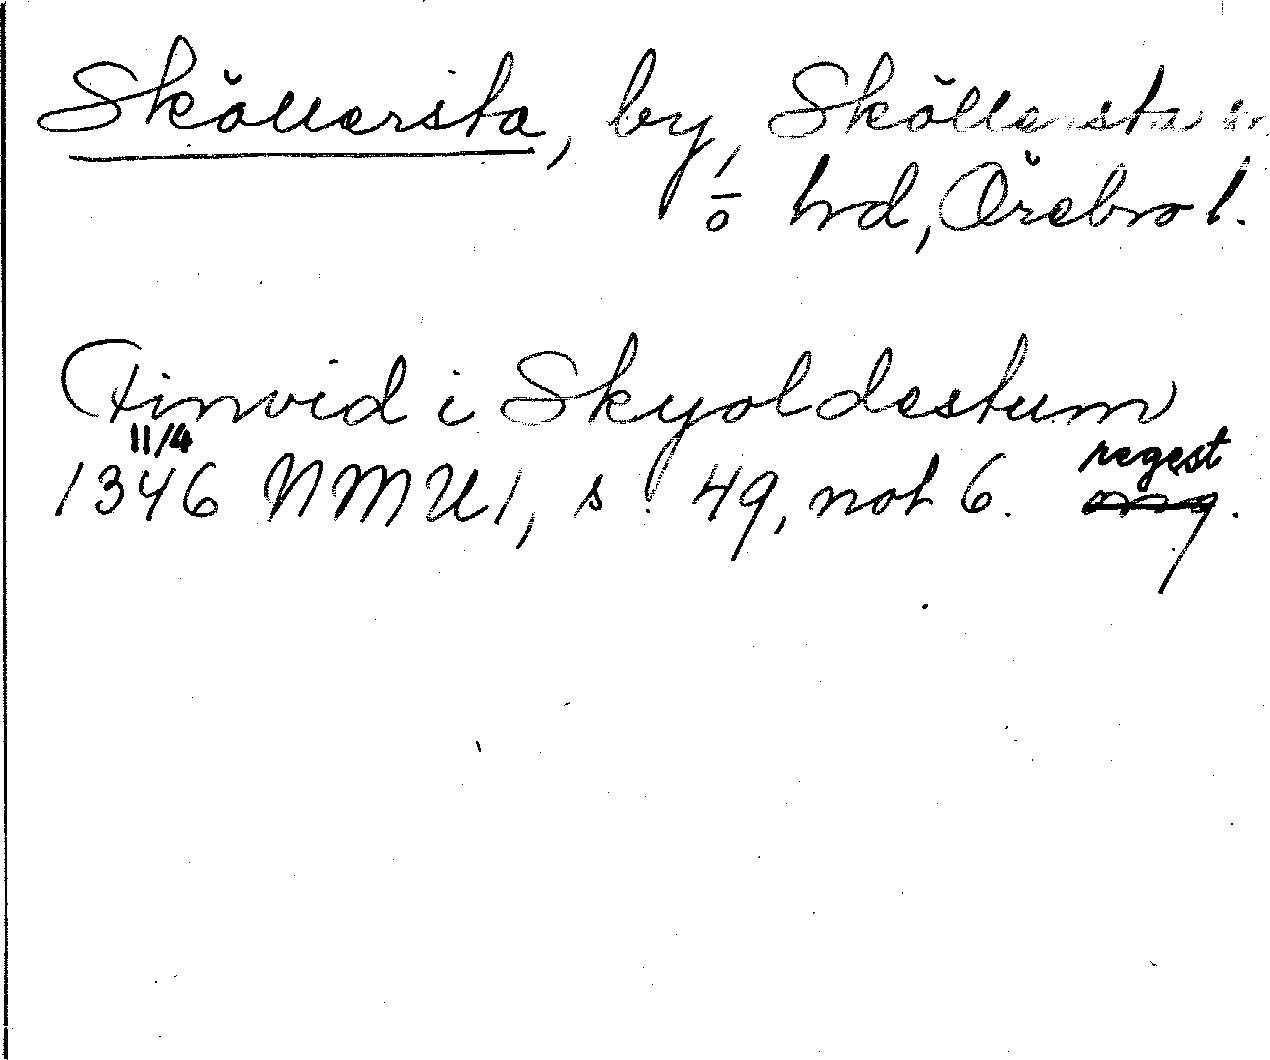 Sköllersta, by, Sköllersta sn
o hrd, Örebro l.
Finvid i Skyoldestum
11/4
1346 NMU 1, s. 49, not 6. regest